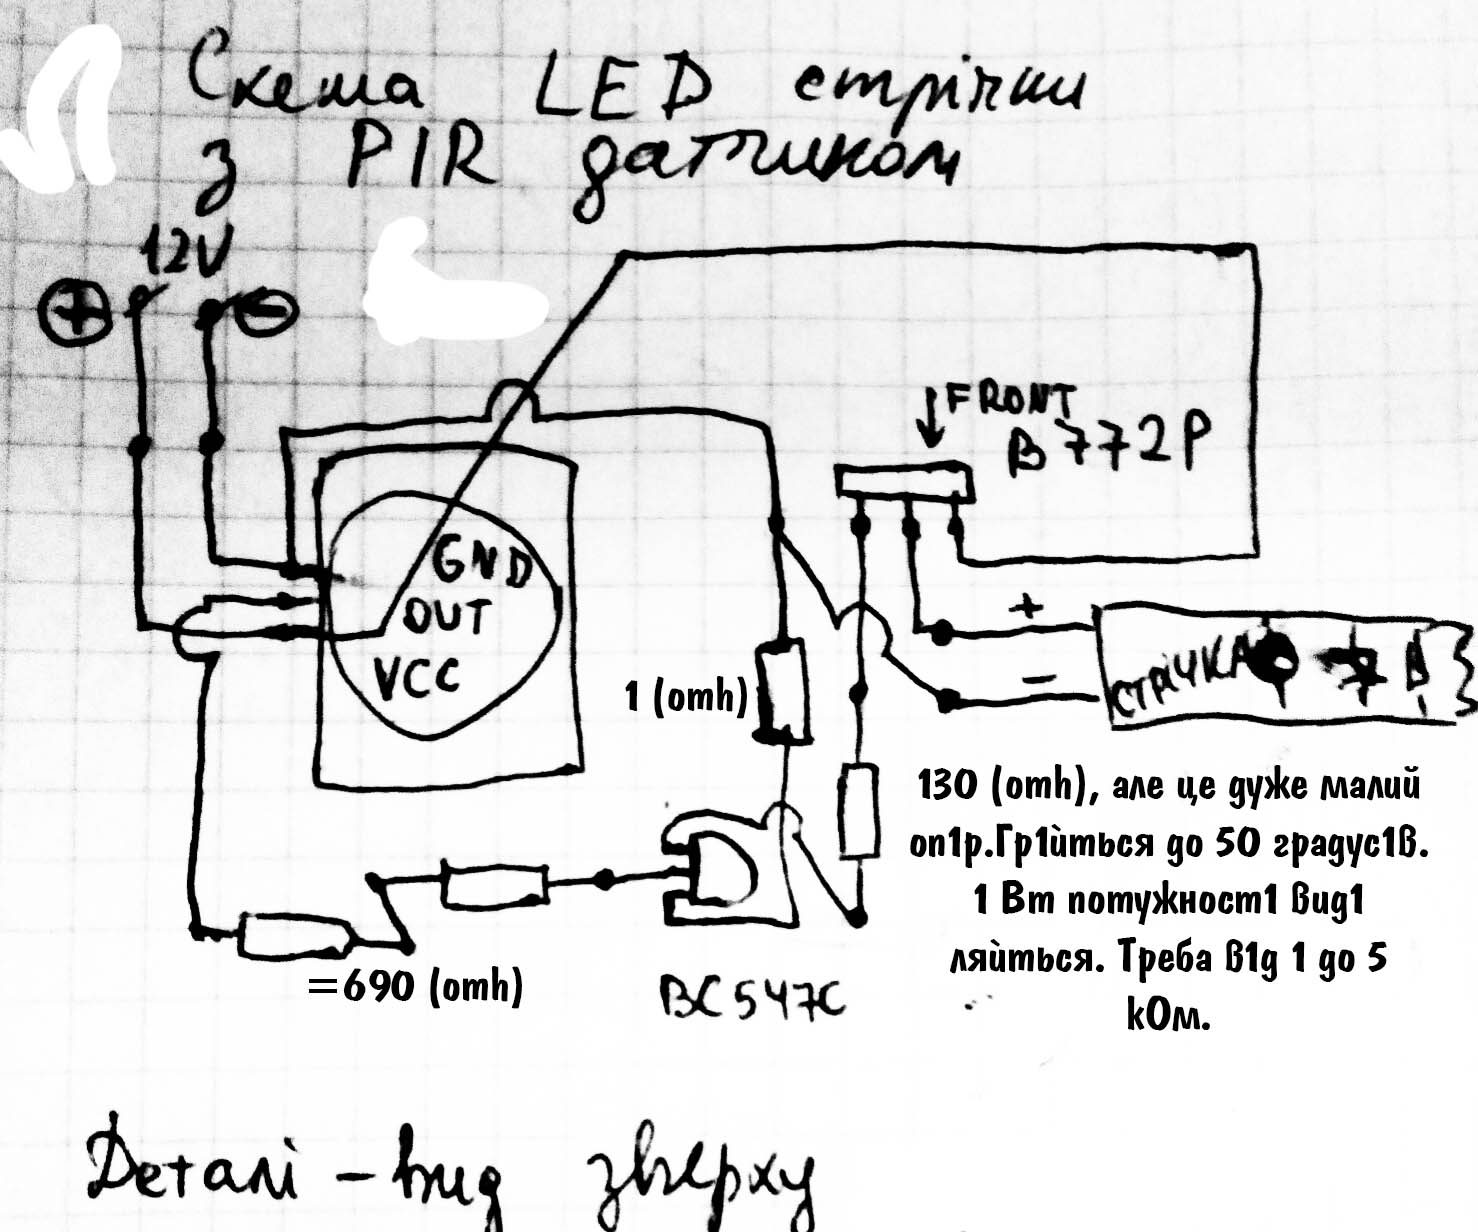 Схема LED стрічки
з PIR датчиком
12V
+ -
FRONT
B772P
GND
OUT
VCC
+
-
СТРІЧКА
1 (omh)
130 (omh), але це дуже малий
оп1р.Гр1йться до 50 градус1в.
1 Вт потужност1 вид1
ляйться. Треба в1д 1 до 5
кОм.
=690 (omh)
BC547C
Деталі - вид зверху